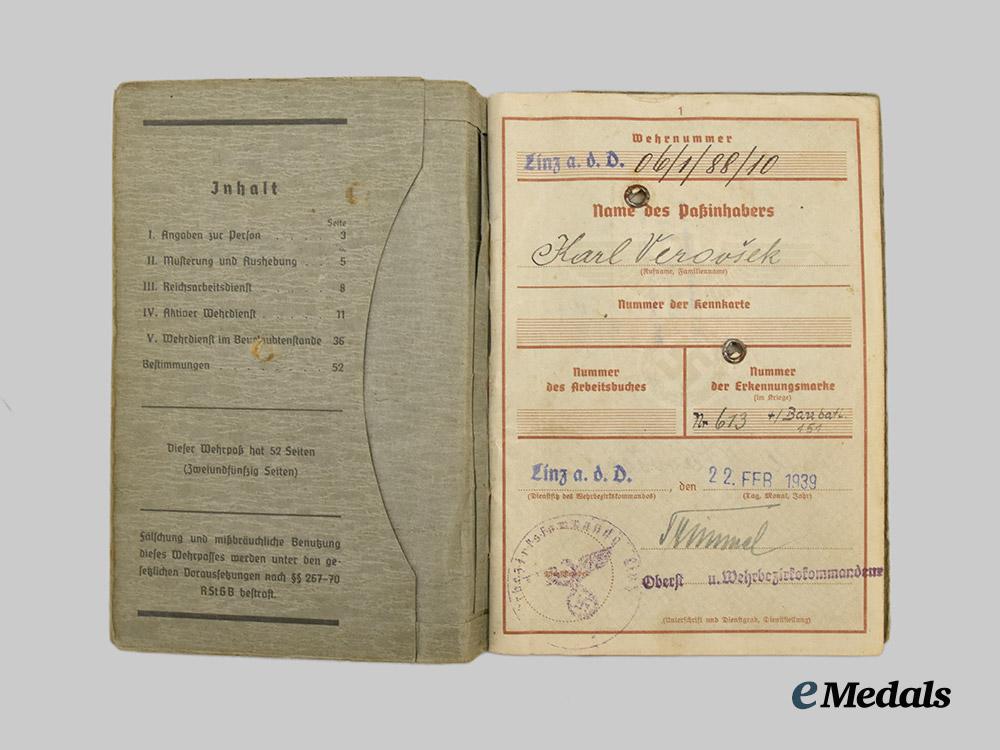 Inhalt
Seite
I. Angaben zur Person . . . . 3
II. Musterung und Aushebung . . 5
III. Reichsarbeitsdienst . . . . 8
IV. Aktiver Wehrdienst . . . . 11
V. Wehrdienst im Beurlaubtenstande 36
Bestimmungen . . . . 52
Dieser Wehrpaß hat 52 Seiten
(Zweiundfünfzig Seiten)
Fälschung und mißbräuchliche Benutzung
dieses Wehrpasses werden unter den ge-
setzlichen Voraussetzungen nach §§ 267-70
RStGB bestraft.
1
Wehrnummer
Linz a. d. D. 06/1/88/10
Name des Paßinhabers
Karl Verovšek
(Rufname, Familienname)
Nummer der Kennkarte
Nummer
des Arbeitsbuches
Nummer
der Erkennungsmarke
(im Kriege)
Nr 613 4/Baubatl.
151
Linz a. d. D. , den 22. FEB 1939
(Dienstsitz des Wehrbezirkskommandos) (Tag, Monat, Jahr)
Oberst u. Wehrbezirkskommandeur
(Unterschrift und Dienstgrad, Dienststellung)
eMedals